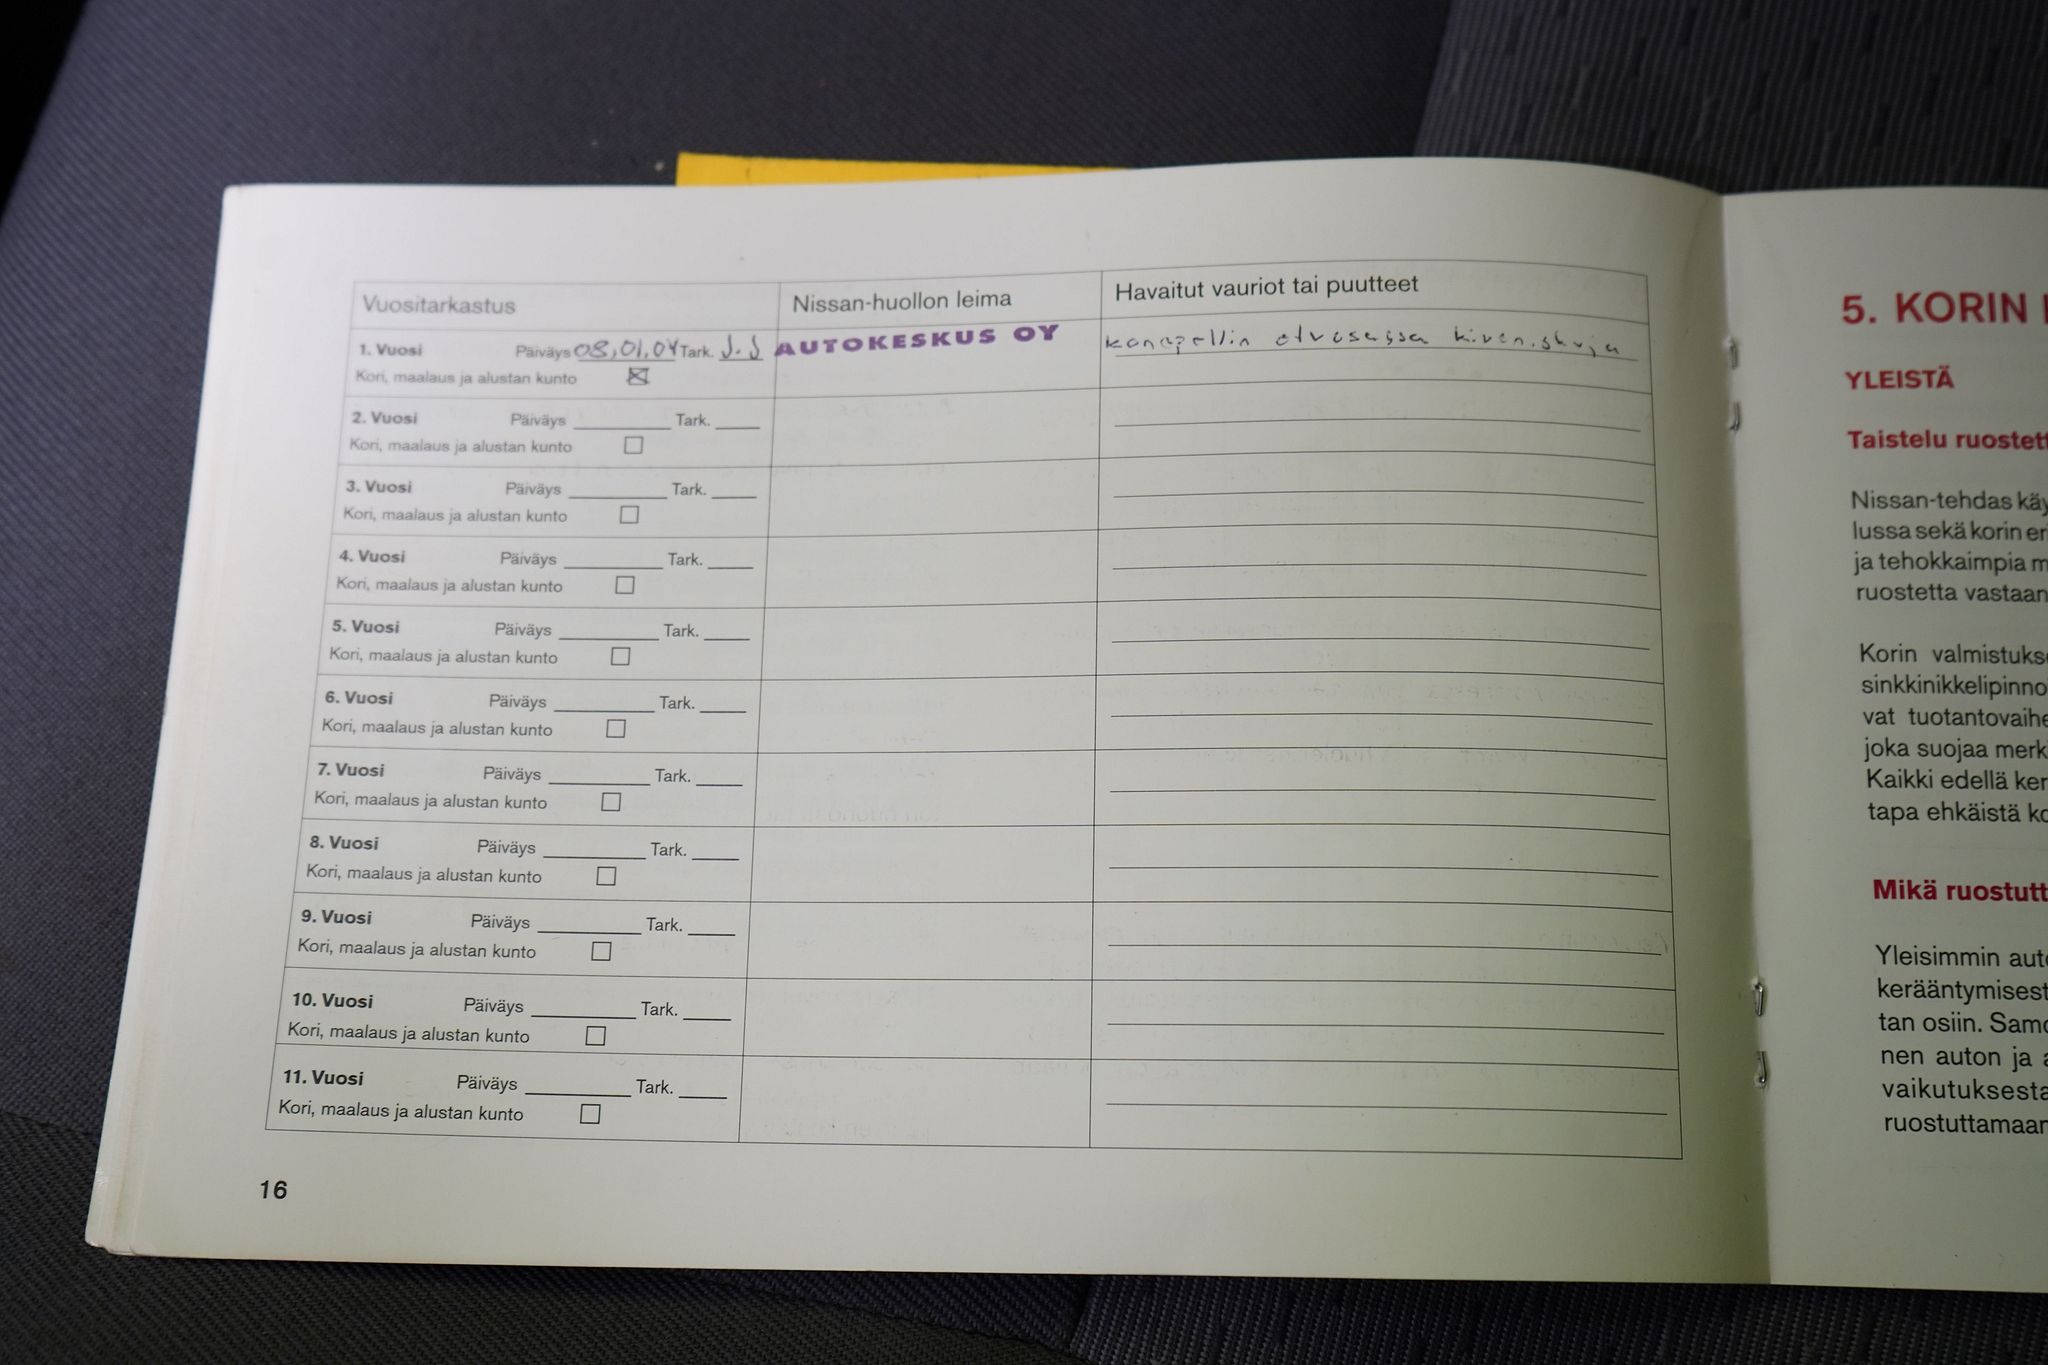 Vuositarkastus Nissan-huollon leima Havaitut vauriot tai puutteet
1. Vuosi Päiväys 08,01,04 Tark. J.J AUTOKESKUS OY konepellin etuosassa kiveniskuja
Kori, maalaus ja alustan kunto
2. Vuosi Päiväys Tark.
Kori, maalaus ja alustan kunto
3. Vuosi Päiväys Tark.
Kori, maalaus ja alustan kunto
4. Vuosi Päiväys Tark.
Kori, maalaus ja alustan kunto
5. Vuosi Päiväys Tark.
Kori, maalaus ja alustan kunto
6. Vuosi Päiväys Tark.
Kori, maalaus ja alustan kunto
7. Vuosi Päiväys Tark.
Kori, maalaus ja alustan kunto
8. Vuosi Päiväys Tark.
Kori, maalaus ja alustan kunto
9. Vuosi Päiväys Tark.
Kori, maalaus ja alustan kunto
10. Vuosi Päiväys Tark.
Kori, maalaus ja alustan kunto
11. Vuosi Päiväys Tark.
Kori, maalaus ja alustan kunto
16
5. KORIN
YLEISTÄ
Taistelu ruostett
Nissan-tehdas käy
lussa sekä korin eri
ja tehokkaimpia m
ruostetta vastaan
Korin valmistukse
sinkkinikkelipinno
vat tuotantovaihe
joka suojaa merk
Kaikki edellä ker
tapa ehkäistä ko
Mikä ruostutt
Yleisimmin auto
kerääntymisest
tan osiin. Samo
nen auton ja a
vaikutuksesta
ruostuttamaan